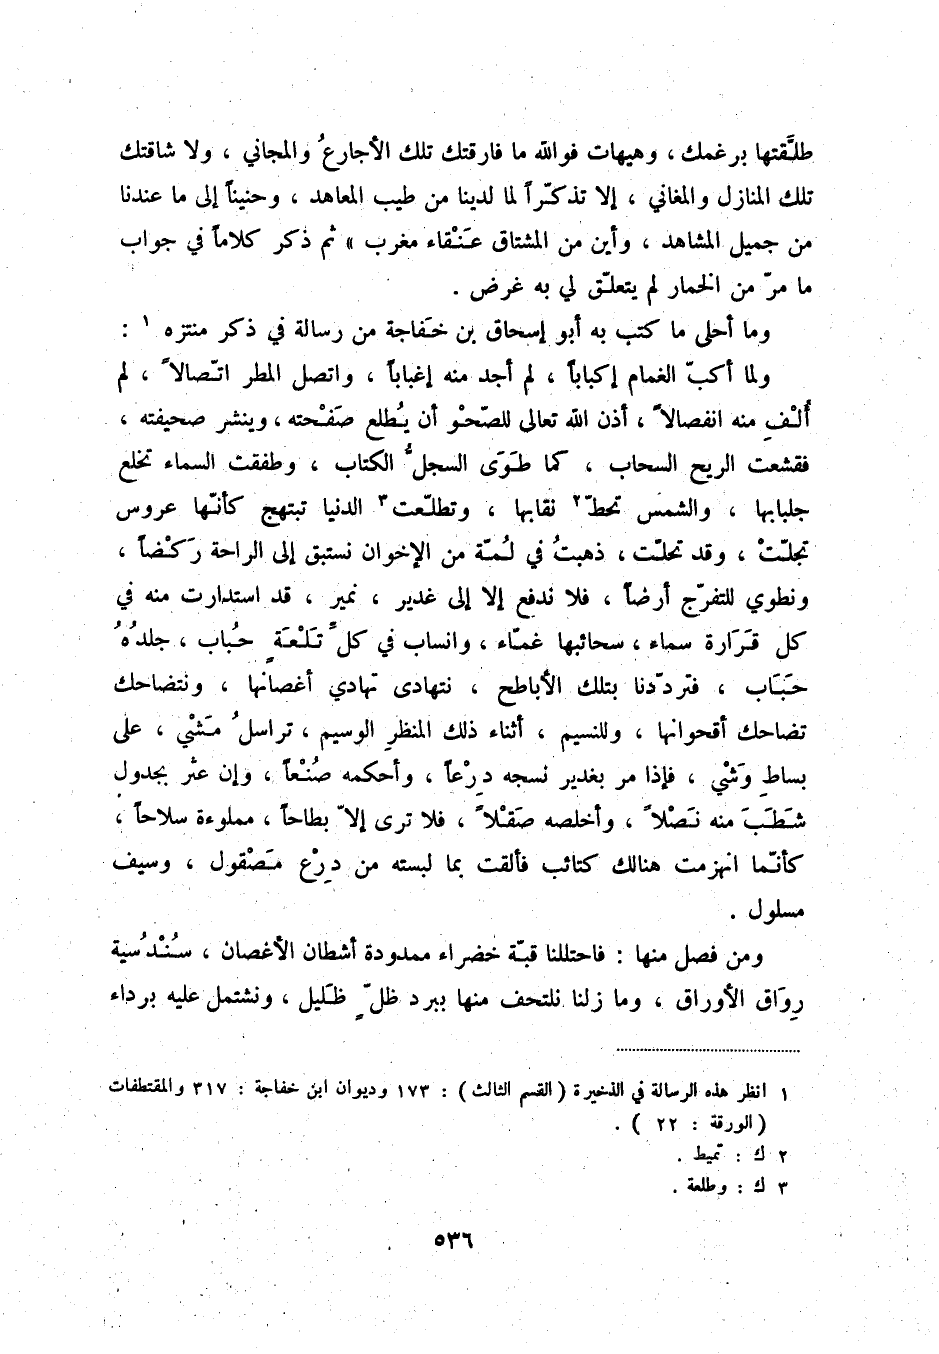 طلَّقتها برغمك ، وهيهات فوالله ما فارقتك تلك الأجارعُ والمجاني ، ولا شاقتك
تلك المنازل والمغاني ، إلا تذكّراً لما لدينا من طيب المعاهد ، وحنيناً إلى ما عندنا
من جميل المشاهد ، وأين من المشتاق عَنْقاء مغرب » ثم ذكر كلاماً في جواب
ما مرّ من الخمار لم يتعلّق لي به غرض .
وما أحلى ما كتب به أبو إسحاق بن خَفاجة من رسالة في ذكر منتزه ١ :
ولما أكبّ الغمام إكباباً ، لم أجد منه إغباباً ، واتصل المطر اتّصالاً ، لم
أُلْفِ منه انفصالاً ، أذن الله تعالى للصّحْو أن يُطلع صَفْحته ، وينشر صحيفته ،
فقشعت الريح السحاب ، كما طَوَى السجلُّ الكتاب ، وطفقت السماء تخلع
جلبابها ، والشمس تحطّ٢ نقابها ، وتطلّعت٣ الدنيا تبتهج كأنّها عروس
تجلّتْ ، وقد تحلّت ، ذهبتُ في لُمّة من الإخوان نستبق إلى الراحة رَكْضاً ،
ونطوي للتفرّج أرضاً ، فلا ندفع إلا إلى غدير ، نمير ، قد استدارت منه في
كل قَرَارة سماء ، سحائبها غمّاء ، وانساب في كلّ تَلْعَةٍ حُباب ، جلدُهُ
حَبَاب ، فتردّدنا بتلك الأباطح ، نتهادى تهادي أغصانها ، ونتضاحك
تضاحك أقحوانها ، وللنسيم ، أثناء ذلك المنظرِ الوسيم ، تراسلُ مَشْي ، على
بساطِ وَشْي ، فإذا مر بغدير نسجه دِرْعاً ، وأحكمه صُنْعاً ، وإن عثر بجدول
شَطَبَ منه نَصْلاً ، وأخلصه صَقْلاً ، فلا ترى إلاّ بطاحاً ، مملوءة سلاحاً ،
كأنّما انهزمت هنالك كتائب فألقت بما لبسته من دِرْع مَصْقول ، وسيف
مسلول .
ومن فصل منها : فاحتللنا قبّة خضراء ممدودة أشطان الأغصان ، سُنْدُسية
رِوَاق الأوراق ، وما زلنا نلتحف منها ببرد ظلّ ظَليل ، ونشتمل عليه برداء
١ انظر هذه الرسالة في الذخيرة ( القسم الثالث ) : ١٧٣ وديوان ابن خفاجة : ٣١٧ والمقتطفات
( الورقة : ٢٢ ) .
٢ ك : تميط .
٣ ك : وطلعة .
٥٣٦